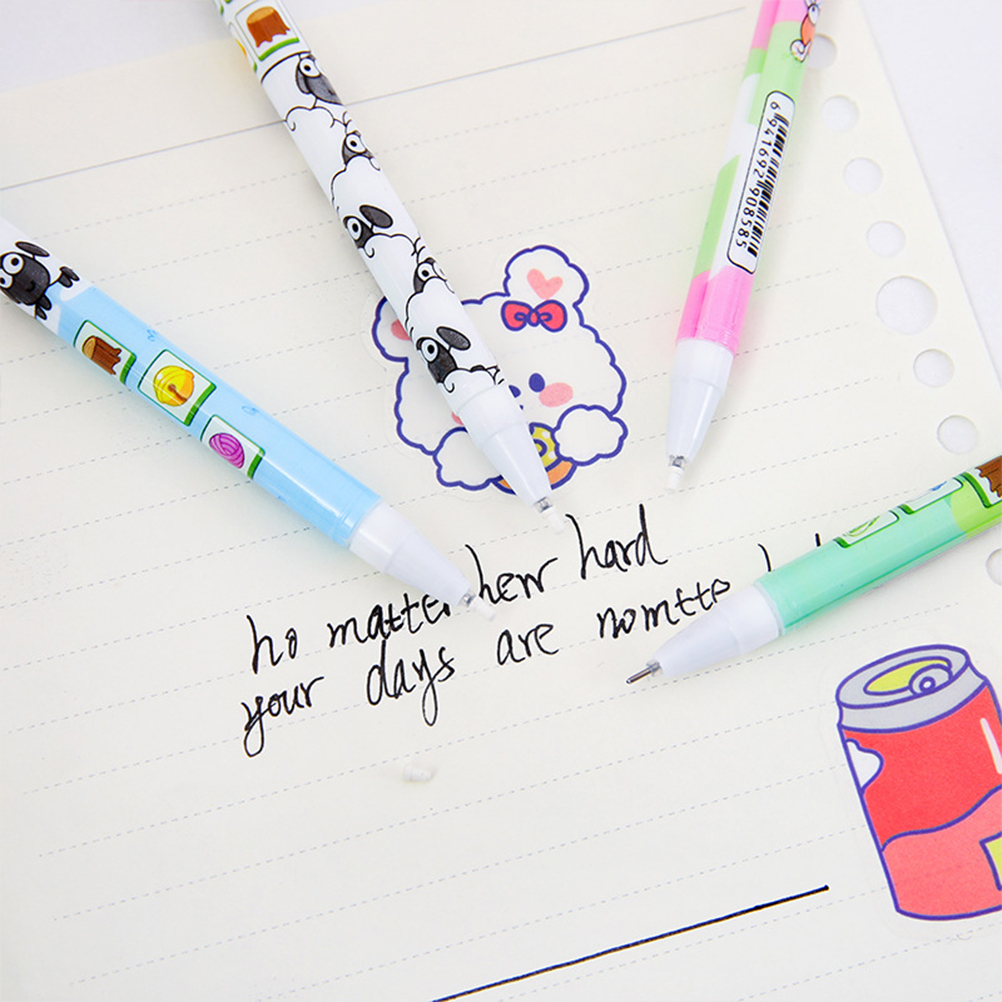 6941692908585
no matter hew hard
your days are nomtte